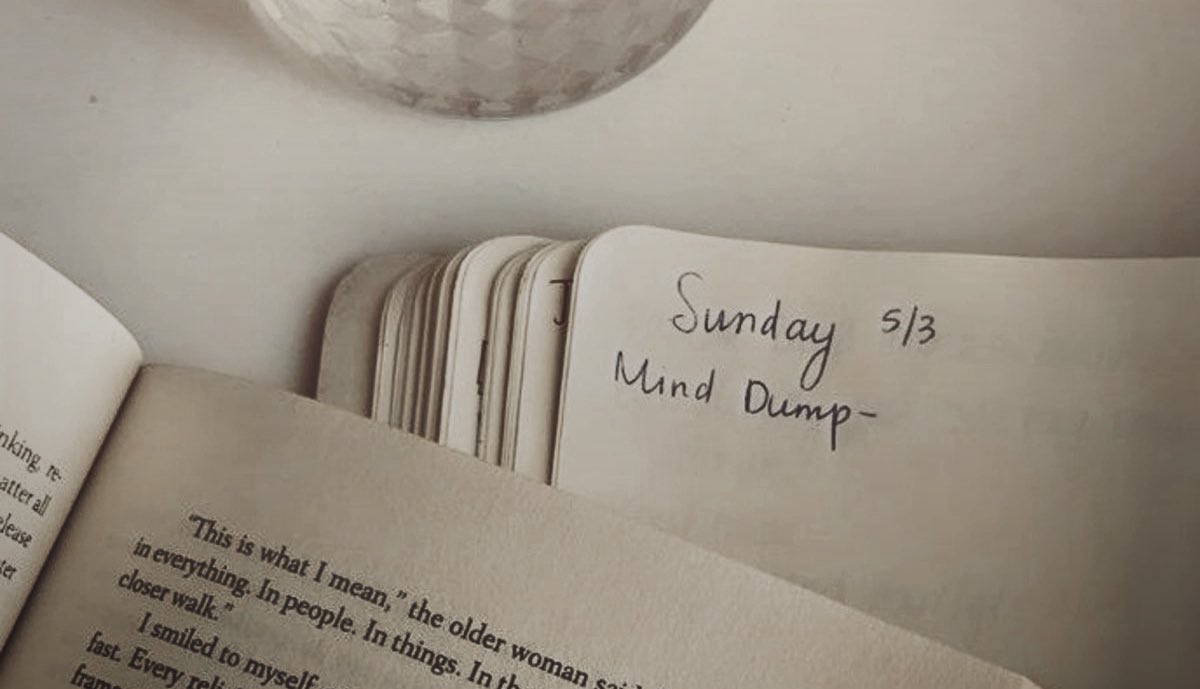 J
Sunday 5/3
Mind Dump-
nking, re-
atter all
lease
"This is what I mean," the older woman said
in everything. In people. In things. In the
closer walk."
I smiled to myself
fast. Every reli
frame